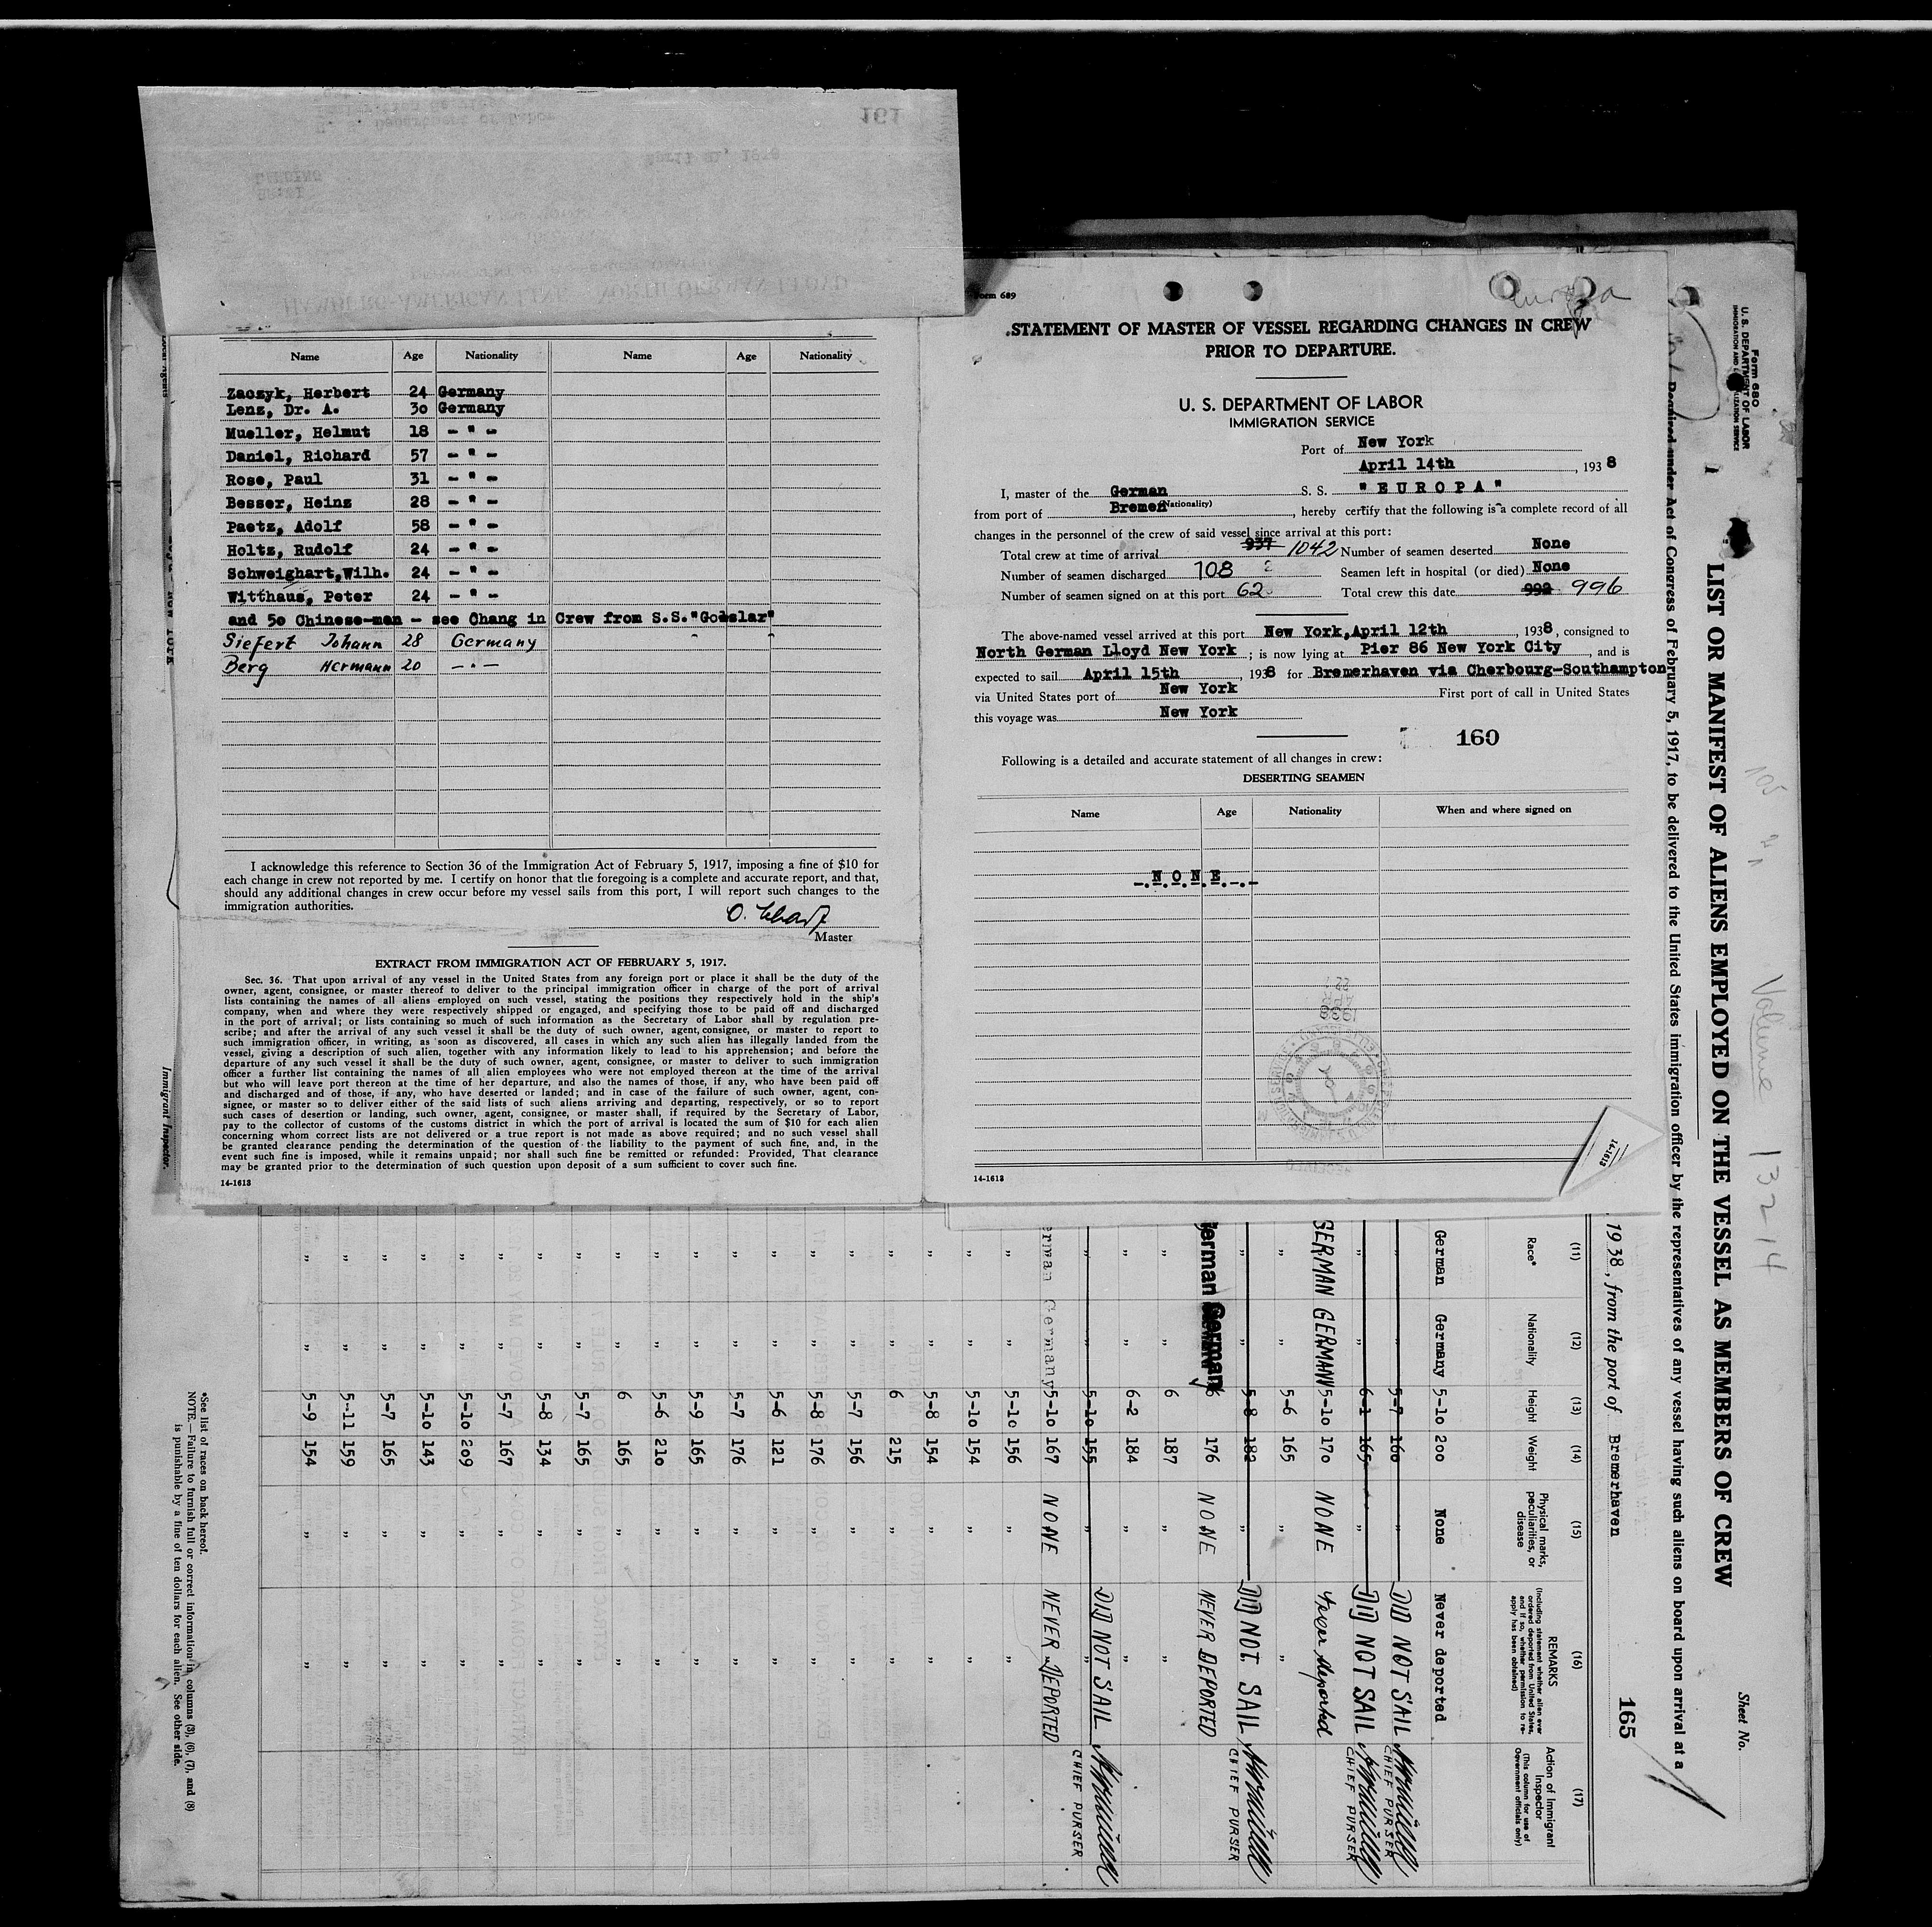 161
HAMBURG-AMERICAN LINE NORTH GERMAN LLOYD
Name Age Nationality Name Age Nationality
Zaczyk, Herbert 24 Germany
Lenz, Dr. A. 30 Germany
Mueller, Helmut 18 - " -
Daniel, Richard 57 - " -
Rose, Paul 31 - " -
Besser, Heinz 28 - " -
Paetz, Adolf 58 - " -
Holtz, Rudolf 24 - " -
Schweighart,Wilh. 24 - " -
Witthaus, Peter 24 - " -
and 50 Chinese-men - see Chang in Crew from S.S."Godslar"
Siefert Johann 28 Germany
Berg Hermann 20 - " -
I acknowledge this reference to Section 36 of the Immigration Act of February 5, 1917, imposing a fine of $10 for
each change in crew not reported by me. I certify on honor that the foregoing is a complete and accurate report, and that,
should any additional changes in crew occur before my vessel sails from this port, I will report such changes to the
immigration authorities.
Master
EXTRACT FROM IMMIGRATION ACT OF FEBRUARY 5, 1917.
Sec. 36. That upon arrival of any vessel in the United States from any foreign port or place it shall be the duty of the
owner, agent, consignee, or master thereof to deliver to the principal immigration officer in charge of the port of arrival
lists containing the names of all aliens employed on such vessel, stating the positions they respectively hold in the ship's
company, when and where they were respectively shipped or engaged, and specifying those to be paid off and discharged
in the port of arrival; or lists containing so much of such information as the Secretary of Labor shall by regulation pre-
scribe; and after the arrival of any such vessel it shall be the duty of such owner, agent, consignee, or master to report to
such immigration officer, in writing, as soon as discovered, all cases in which any such alien has illegally landed from the
vessel, giving a description of such alien, together with any information likely to lead to his apprehension; and before the
departure of any such vessel it shall be the duty of such owner, agent, consignee, or master to deliver to such immigration
officer a further list containing the names of all alien employees who were not employed thereon at the time of the arrival
but who will leave port thereon at the time of her departure, and also the names of those, if any, who have been paid off
and discharged and of those, if any, who have deserted or landed; and in case of the failure of such owner, agent, con-
signee, or master so to deliver either of the said lists of such aliens arriving and departing, respectively, or so to report
such cases of desertion or landing, such owner, agent, consignee, or master shall, if required by the Secretary of Labor,
pay to the collector of customs of the customs district in which the port of arrival is located the sum of $10 for each alien
concerning whom correct lists are not delivered or a true report is not made as above required; and no such vessel shall
be granted clearance pending the determination of the question of the liability to the payment of such fine, and, in the
event such fine is imposed, while it remains unpaid; nor shall such fine be remitted or refunded: Provided, That clearance
may be granted prior to the determination of such question upon deposit of a sum sufficient to cover such fine.
14-1613
Immigrant Inspector.
Form 689
Europa
STATEMENT OF MASTER OF VESSEL REGARDING CHANGES IN CREW
PRIOR TO DEPARTURE.
U. S. DEPARTMENT OF LABOR
IMMIGRATION SERVICE
Port of New York
April 14th, 1938
I, master of the German S. S. "EUROPA"
(Nationality)
from port of Bremen, hereby certify that the following is a complete record of all
changes in the personnel of the crew of said vessel since arrival at this port:
Total crew at time of arrival 937 1042 Number of seamen deserted None
Number of seamen discharged 108 Seamen left in hospital (or died) None
Number of seamen signed on at this port 62 Total crew this date 992 996
The above-named vessel arrived at this port New York,April 12th, 1938, consigned to
North German Lloyd New York; is now lying at Pier 86 New York City, and is
expected to sail April 15th, 1938 for Bremerhaven via Cherbourg-Southampton
via United States port of New York First port of call in United States
this voyage was New York
160
Following is a detailed and accurate statement of all changes in crew:
DESERTING SEAMEN
Name Age Nationality When and where signed on
-.N.O.N.E.-.-
14-1613
14-1613
Form 680
U. S. DEPARTMENT OF LABOR
IMMIGRATION AND NATURALIZATION SERVICE
Sheet No.
105
Volume 13214
LIST OR MANIFEST OF ALIENS EMPLOYED ON THE VESSEL AS MEMBERS OF CREW
Required under Act of Congress of February 5, 1917, to be delivered to the United States immigration officer by the representatives of any vessel having such aliens on board upon arrival at a
1938, from the port of Bremerhaven
165
(11) (12) (13) (14) (15) (16) (17)
Race* Nationality Height Weight Physical marks, peculiarities, or disease REMARKS (Including statement whether alien ever ordered deported from United States, and if so, whether permission to re-apply has been obtained) Action of Immigrant Inspector (This column for use of Government officials only)
German Germany 5-10 200 None Never deported
" " 5-7 160 " DID NOT SAIL CHIEF PURSER
" " 6-1 165 " DID NOT SAIL CHIEF PURSER
GERMAN GERMANY 5-10 170 NONE Never deported
" " 5-6 165 " "
" " 5-8 182 " DID NOT SAIL CHIEF PURSER
German German 6 176 NONE NEVER DEPORTED
" " 6 187 " "
" " 6-2 184 " "
" " 5-10 155 " DID NOT SAIL CHIEF PURSER
erman Germany 5-10 167 NONE NEVER DEPORTED
" " 5-10 156 " "
" " 5-10 154 " "
" " 5-8 154 " "
" " 6 215 " "
" " 5-7 156 " "
" " 5-8 176 " "
" " 5-6 121 " "
" " 5-7 176 " "
" " 5-9 165 " "
" " 5-6 210 " "
" " 6 165 " "
" " 5-7 165 " "
" " 5-8 134 " "
" " 5-7 167 " "
" " 5-10 209 " "
" " 5-10 143 " "
" " 5-7 165 " "
" " 5-11 159 " "
" " 5-9 154 " "
*See list of races on back hereof.
NOTE.—Failure to furnish full or correct information in columns (3), (6), (7), and (8)
is punishable by a fine of ten dollars for each alien. See other side.